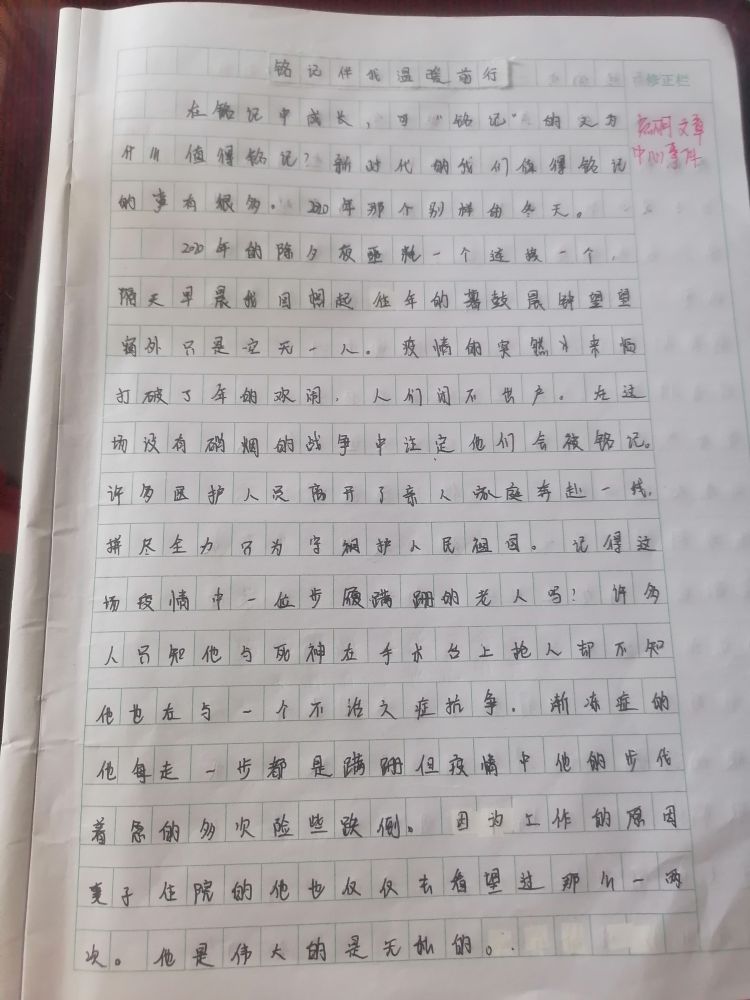 铭记伴我温暖前行
修正栏
在铭记中成长,可“铭记”的又为
什么值得铭记?新时代的我们值得铭记
的事有很多。2020年那个别样的冬天。
点明文章
中心事件
2020年的除夕夜噩耗一个连接一个,
隔天早晨我回想起往年的暮鼓晨钟望望
窗外只是空无一人。疫情的突然
打破了年的欢闹,人们闭不出户。在这
场没有硝烟的战争中注定他们会被铭记。
许多医护人员离开了亲人家庭奔赴一线,
拼尽全力只为守护人民祖国。记得这
场疫情中一位步履蹒跚的老人吗?许多
人只知他与死神在手术台上抢人却不知
他也在与一个不治之症抗争,渐冻症的
他每走一步都是蹒跚但疫情中他的步伐
着急的多次险些跌倒。因为工作的原因
妻子住院的他也仅仅去看望过那么一两
次。他是伟大的是无私的。